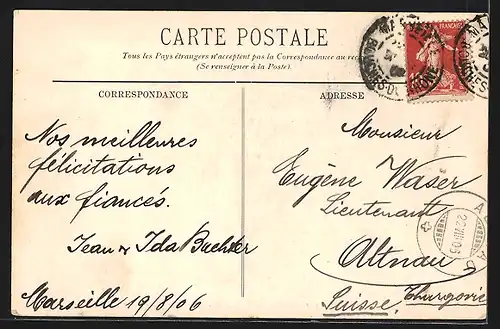 CARTE POSTALE
Tous les Pays étrangers n'acceptent pas la Correspondance au recto
(Se renseigner à la Poste)
CORRESPONDANCE
ADRESSE
Nos meilleures
félicitations
aux fiancés.
Jean & Ida
Marseille 19/8/06
Monsieur
Eugène Waser
Lieutenant
Altnau
Suisse, Thurgovie